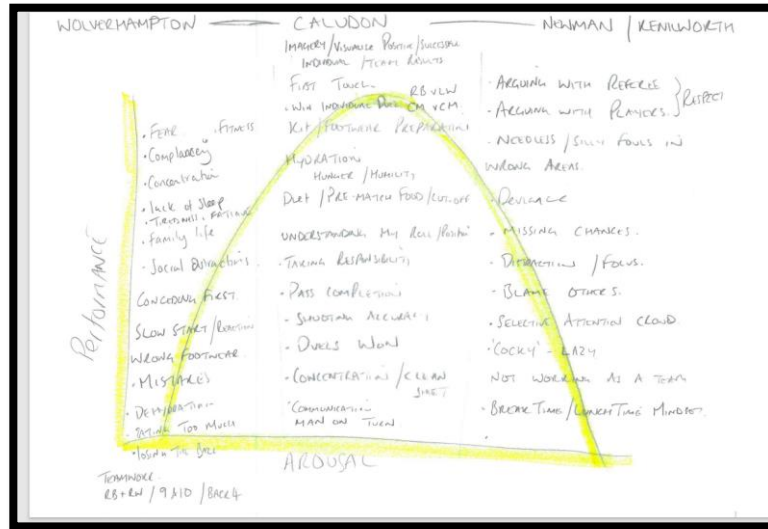 WOLVERHAMPTON — CALUDON — NEWMAN / KENILWORTH
Performance
· FEAR. · FITNESS
· Complacency
· Concentration
· lack of Sleep
· TIREDNESS
· family life
· Social Distractions.
CONCEDING FIRST.
SLOW START / REACTION
WRONG FOOTWEAR.
· MISTAKES
· DEHYDRATION
· EATING TOO MUCH
· LOSING THE BALL
TEAMWORK
RB + RW / 9 & 10 / BACK 4
IMAGERY / VISUALISE POSITIVE / SUCCESSFUL
INDIVIDUAL / TEAM RESULTS
FIRST TOUCH. RB v LW
· WIN INDIVIDUAL DUEL CM v CM
KIT / FOOTWEAR PREPARATION
HYDRATION
HUNGER / HUMILITY
DIET / PRE-MATCH FOOD / CUT-OFF
UNDERSTANDING MY ROLE / POSITION
· TAKING RESPONSIBILITY
· PASS COMPLETION
· SHOOTING ACCURACY
· DUELS WON
· CONCENTRATION / CLEAN
SHEET
COMMUNICATION
MAN ON TURN.
AROUSAL
· ARGUING WITH REFEREE
· ARGUING WITH PLAYERS. } RESPECT
· NEEDLESS / SILLY FOULS IN
WRONG AREAS.
· MISSING CHANCES.
· DISTRACTION / FOCUS.
· BLAME OTHERS.
· SELECTIVE ATTENTION CROWD.
'COCKY' - LAZY
NOT WORKING AS A TEAM
· BREAK TIME / LUNCH TIME MINDSET.